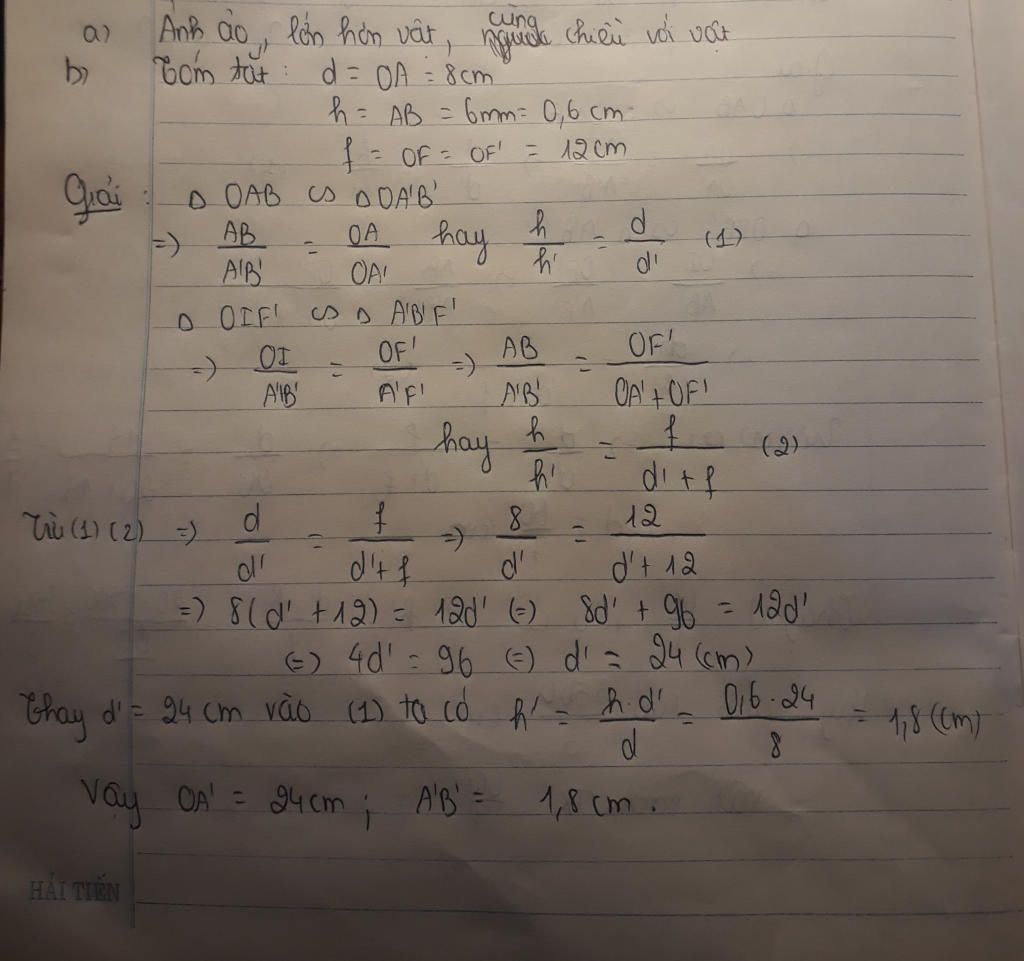 a) Ảnh ảo, lớn hơn vật, cùng chiều với vật
b) Tóm tắt: d = OA = 8cm
h = AB = 6mm = 0,6 cm
f = OF = OF' = 12cm
Giải: Δ OAB ∽ Δ OA'B'
=> AB/A'B' = OA/OA' hay h/h' = d/d' (1)
Δ OIF' ∽ Δ A'B'F'
=> OI/A'B' = OF'/A'F' => AB/A'B' = OF'/OA'+OF'
hay h/h' = f/d'+f (2)
Từ (1) (2) => d/d' = f/d'+f => 8/d' = 12/d'+12
=> 8(d' + 12) = 12d' (=) 8d' + 96 = 12d'
(=) 4d' = 96 (=) d' = 24 (cm)
Thay d' = 24 cm vào (1) ta có h' = h.d'/d = 0,6.24/8 = 1,8 (cm)
Vậy OA' = 24cm; A'B' = 1,8 cm.
HẢI TIẾN